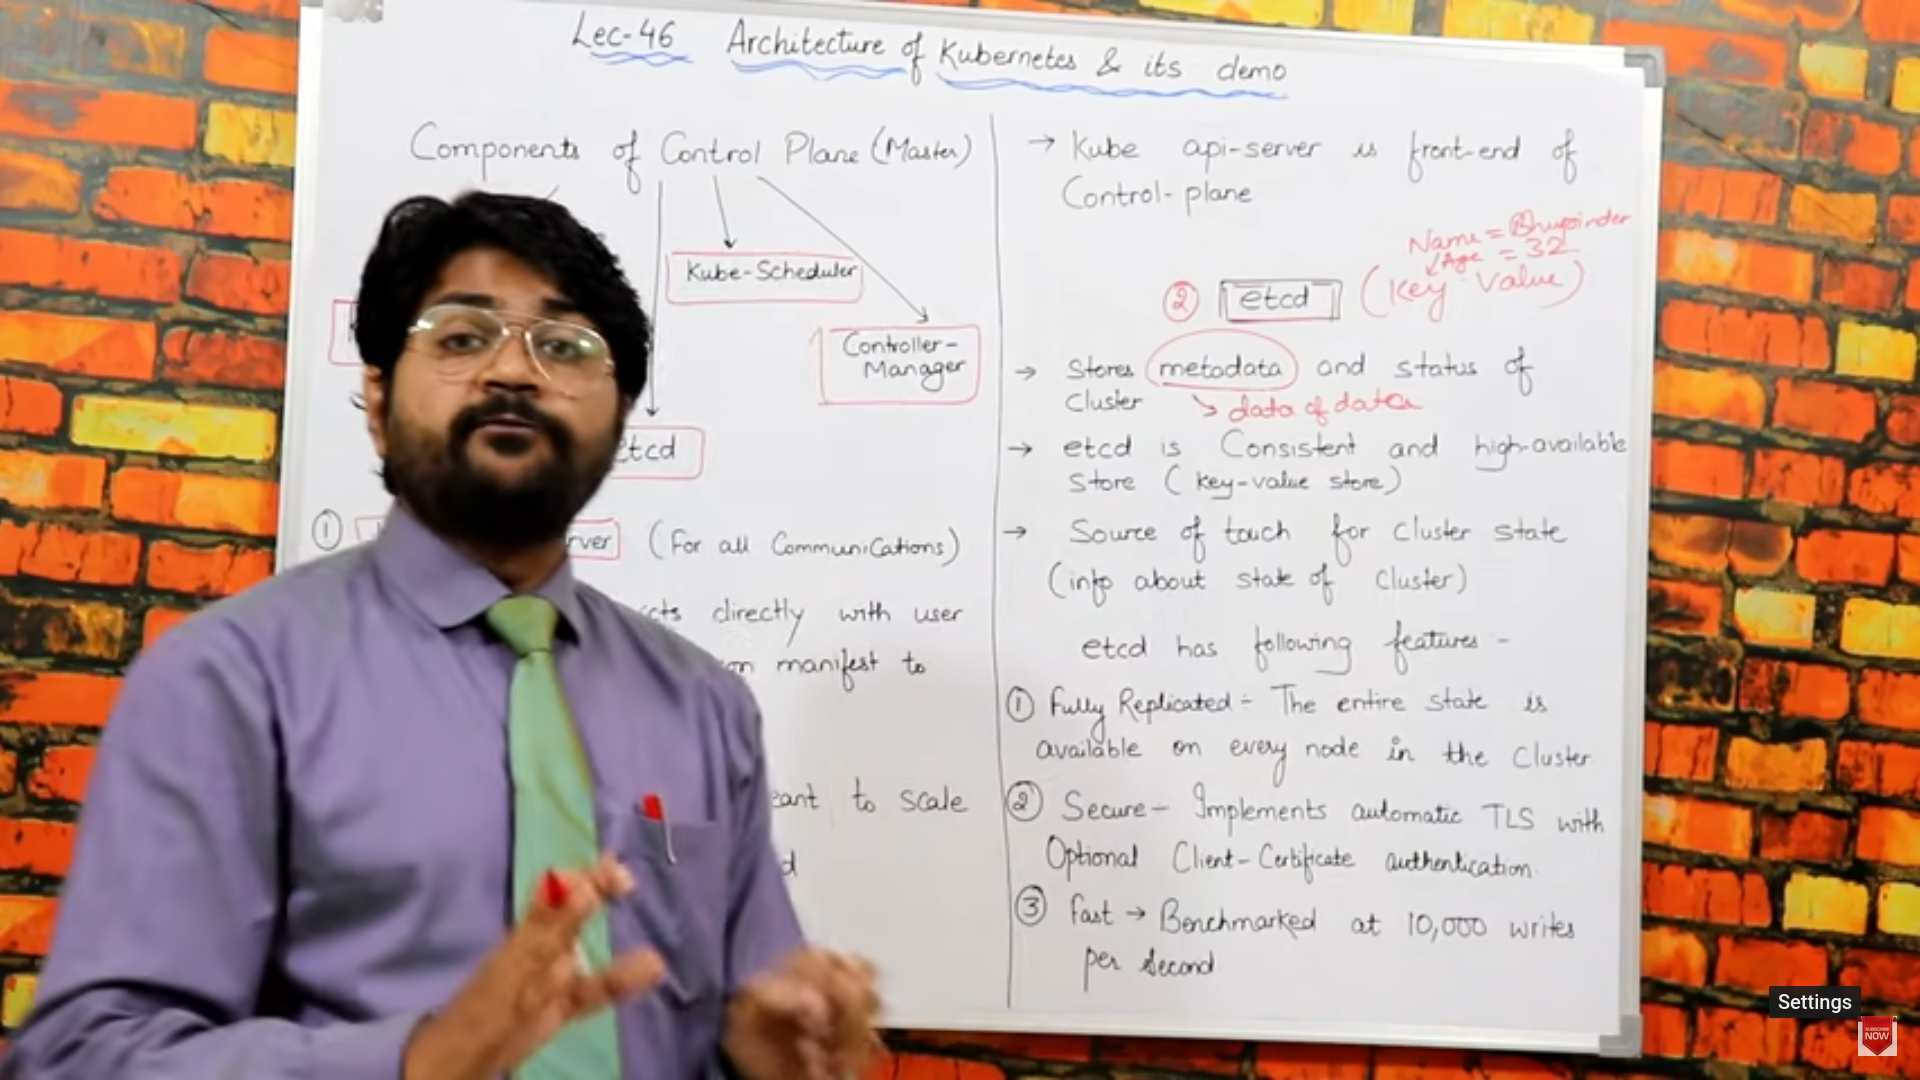 Lec-46 Architecture of Kubernetes & its demo
Components of Control Plane (Master)
Kube-Scheduler
Controller-
Manager
etcd
①
rver (For all Communications)
cts directly with user
on manifest to
eant to scale
d
→ Kube api-server is front-end of
Control-plane
Name = Bhupinder
Age = 32
② etcd (Key Value)
→ Stores metadata and status of
Cluster → data of data
→ etcd is Consistent and high-available
Store (key-value store)
→ Source of touch for cluster state
(info about state of cluster)
etcd has following features -
① Fully Replicated - The entire state is
available on every node in the cluster
② Secure - Implements automatic TLS with
Optional Client-Certificate authentication.
③ Fast → Benchmarked at 10,000 writes
per second
Settings
SUBSCRIBE
NOW